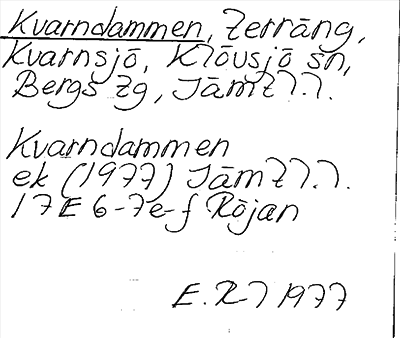 Kvarndammen, terräng,
Kvarnsjö, Klövsjö sn,
Bergs tg, Jämtl.l.
Kvarndammen
ek (1977) Jämtl.l.
17E 6-7e-f Röjan
E. 1977